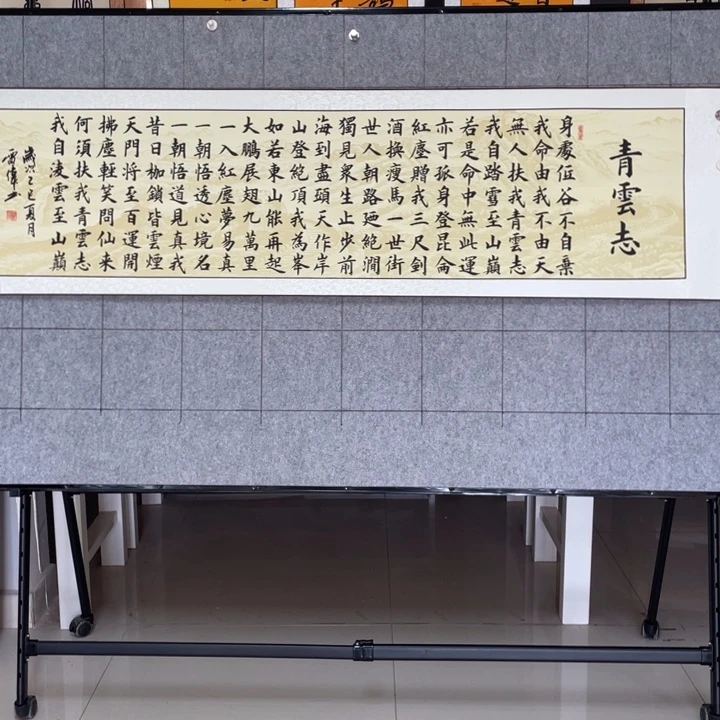 青雲志
身處低谷不自棄
我命由我不由天
無人扶我青雲志
我自踏雪至山巔
若是命中無此運
亦可孤身登昆侖
紅塵贈我三尺劍
酒換瘦馬一世街
世人朝路廻絕澗
獨見衆生止步前
海到盡頭天作岸
山登絕頂我為峯
如若東山能再起
大鵬展翅九萬里
一入紅塵夢易真
一朝悟透心境名
一朝悟道見真我
昔日枷鎖皆雲煙
天門將至百運開
拂塵輕笑問仙来
何須扶我青雲志
我自凌雲至山巔
歲次乙巳夏月